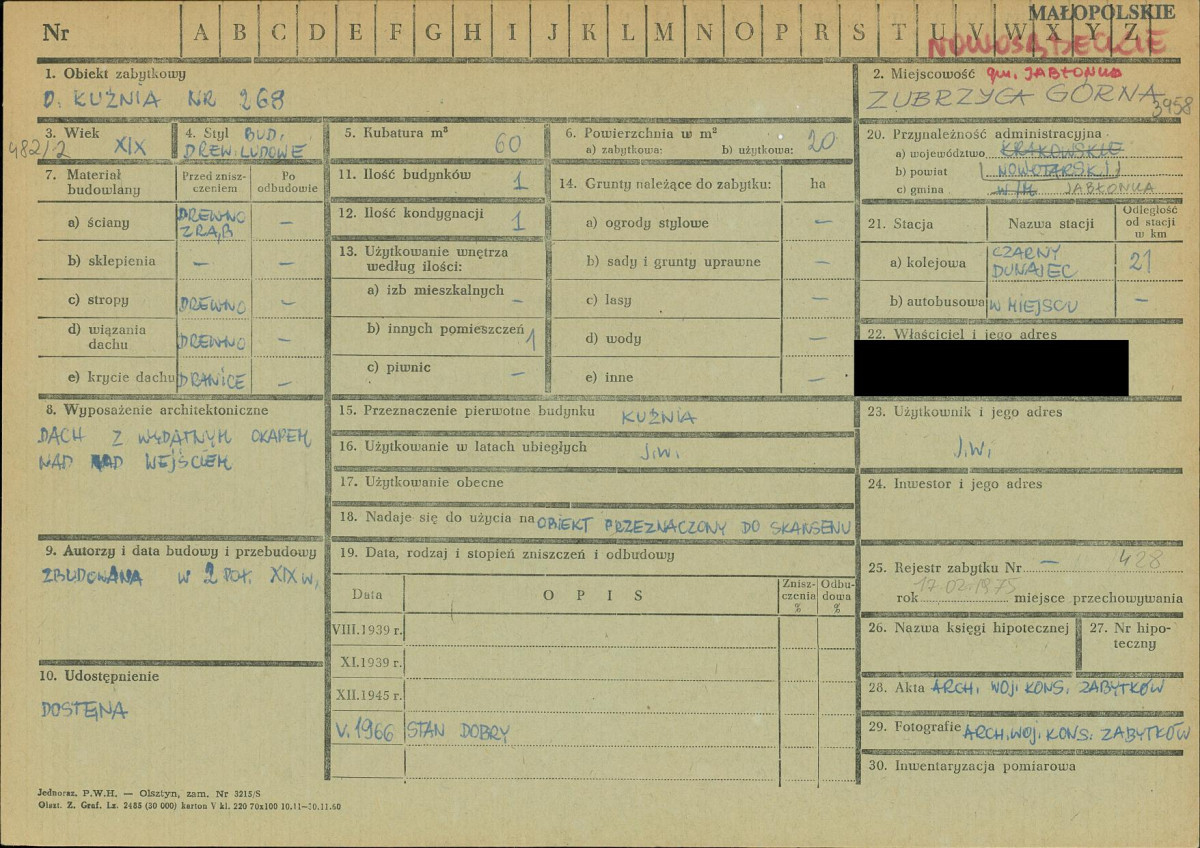 MAŁOPOLSKIE
Nr A B C D E F G H I J K L M N O P R S T U V W X Y Z
NOWOSĄDECKIE
1. Obiekt zabytkowy
D. KUŹNIA NR 268
2. Miejscowość gm. JABŁONKA
ZUBRZYCA GÓRNA
3958
482/2
3. Wiek
XIX
4. Styl BUD.
DREW. LUDOWE
5. Kubatura m³
60
6. Powierzchnia w m²
a) zabytkowa: b) użytkowa: 20
7. Materiał budowlany
Przed zniszczeniem
Po odbudowie
a) ściany DREWNO ZRĄB —
b) sklepienia — —
c) stropy DREWNO —
d) wiązania dachu DREWNO —
e) krycie dachu DRANICE —
11. Ilość budynków 1
12. Ilość kondygnacji 1
13. Użytkowanie wnętrza
według ilości:
a) izb mieszkalnych —
b) innych pomieszczeń 1
c) piwnic —
14. Grunty należące do zabytku: ha
a) ogrody stylowe —
b) sady i grunty uprawne —
c) lasy —
d) wody —
e) inne —
20. Przynależność administracyjna
a) województwo KRAKOWSKIE
b) powiat NOWOTARSKI
c) gmina W/M JABŁONKA
21. Stacja
Nazwa stacji
Odległość od stacji w km
a) kolejowa CZARNY DUNAJEC 21
b) autobusowa W MIEJSCU —
22. Właściciel i jego adres
8. Wyposażenie architektoniczne
DACH Z WYDATNYM OKAPEM
NAD NAD WEJŚCIEM
15. Przeznaczenie pierwotne budynku KUŹNIA
16. Użytkowanie w latach ubiegłych J.W.
17. Użytkowanie obecne
18. Nadaje się do użycia na OBIEKT PRZEZNACZONY DO SKANSENU
23. Użytkownik i jego adres
J.W.
24. Inwestor i jego adres
9. Autorzy i data budowy i przebudowy
ZBUDOWANA W 2 POŁ. XIX w.
19. Data, rodzaj i stopień zniszczeń i odbudowy
Data
OPIS
Zniszczenia %
Odbudowa %
VIII.1939 r.
XI.1939 r.
XII.1945 r.
V.1966 STAN DOBRY
25. Rejestr zabytku Nr — 428
rok 17.02.1975 miejsce przechowywania
26. Nazwa księgi hipotecznej
27. Nr hipoteczny
10. Udostępnienie
DOSTĘNA
28. Akta ARCH. WOJ. KONS. ZABYTKÓW
29. Fotografie ARCH. WOJ. KONS. ZABYTKÓW
30. Inwentaryzacja pomiarowa
Jednoraz. P.W.H. — Olsztyn, zam. Nr 3215/S
Olszt. Z. Graf. Lz. 2485 (30 000) karton V kl. 220 70x100 10.11—30.11.60